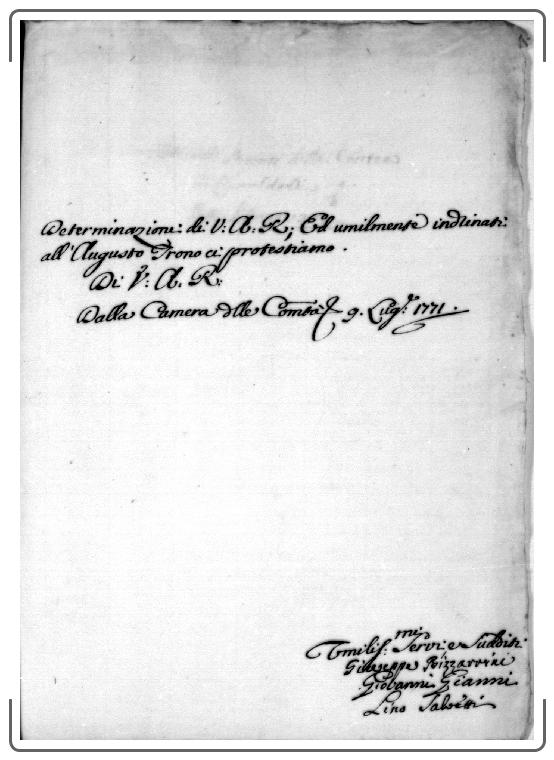 Determinazioni di V: A: R:, Ed umilmente inclinati
all'Augusto Trono ci protestiamo.
Di V: A: R:
Dalla Camera dlle Comtà 9. Lug.º 1771.
Umilis.mi Servi e Sudditi
Giuseppe Bizzarrini
Giovanni Gianni
Lino Salvetti